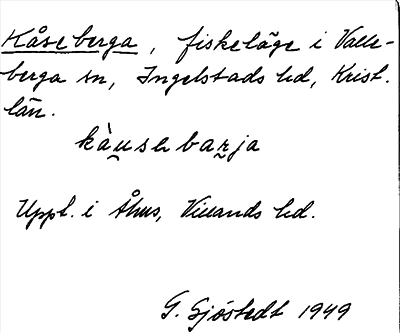 Kåseberga, fiskeläge i Valle-
berga sn, Ingelstads hd, Krist.
län.
kàu̯səbar̯ja
Uppt. i Åhus, Villands hd.
G. Sjöstedt 1949